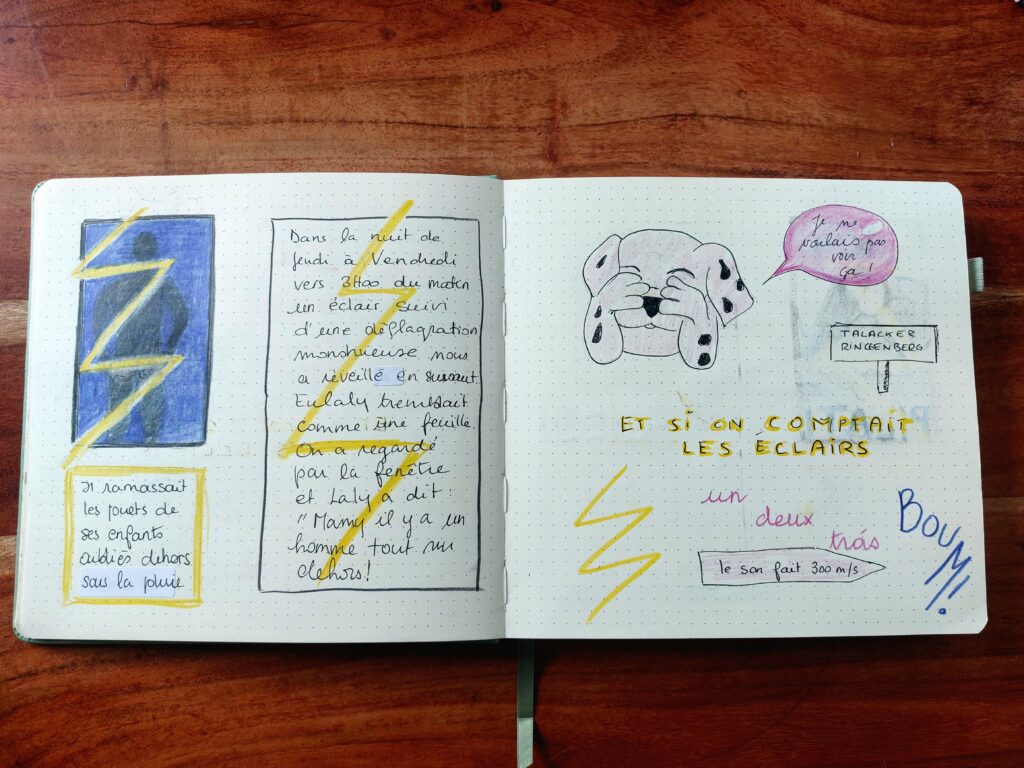 Dans la nuit de
jeudi à Vendredi
vers 3H00 du matin
un éclair suivi
d'une déflagration
monstrueuse nous
a réveillé en sursaut.
Eulaly tremblait
comme une feuille.
On a regardé
par la fenêtre
et Laly a dit :
"Mamy il y a un
homme tout nu
dehors!
Il ramassait
les jouets de
ses enfants
oubliés dehors
sous la pluie
Je ne
voulais pas
voir
ça !
TALACKER
RINGGENBERG
ET SI ON COMPTAIT
LES ÉCLAIRS
un
deux
trois
le son fait 300 m/s
BOUM!